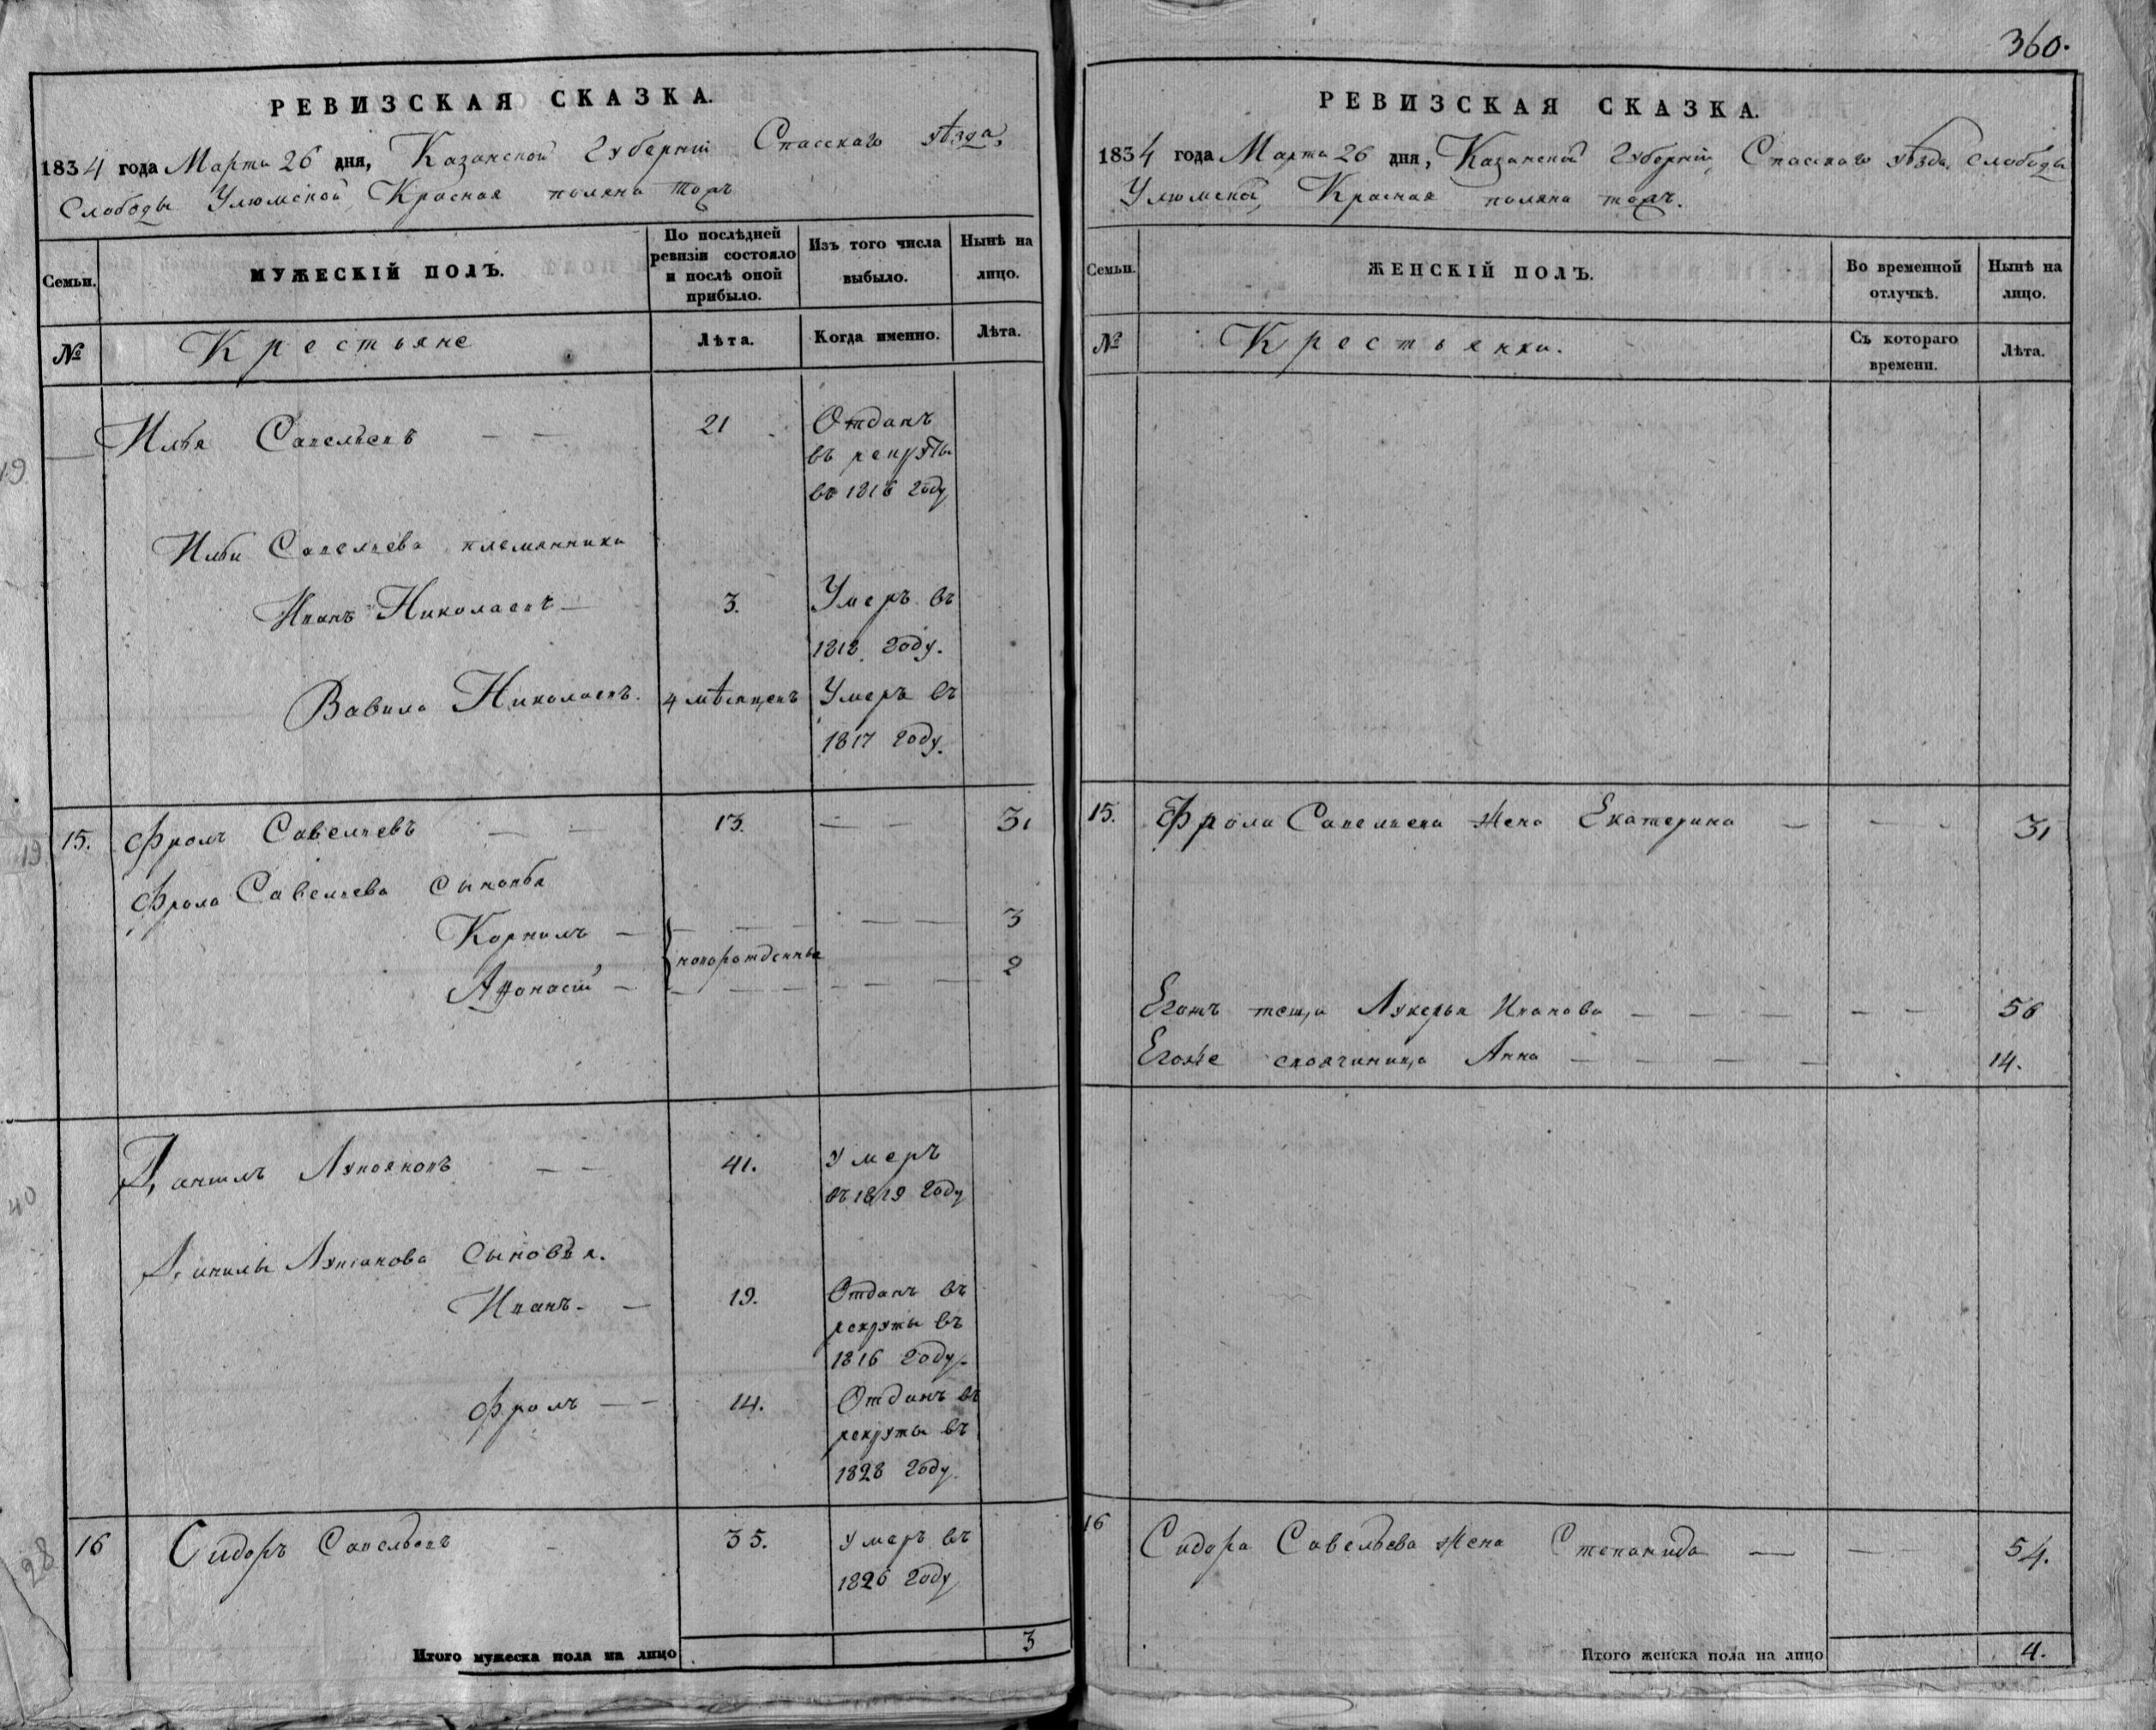 360.
РЕВИЗСКАЯ СКАЗКА.
1834 года Марта 26 дня, Казанской Губернiи Спасскаго уѣзда,
Слободы Улюмской, Красная поляна тожъ
Семьи.
МУЖЕСКIЙ ПОЛЪ.
По послѣдней ревизiи состояло и послѣ оной прибыло.
Изъ того числа выбыло.
Нынѣ на лицо.
№
Крестьяне
Лѣта.
Когда именно.
Лѣта.
19
Илья Савельевъ — — 21 Отданъ
въ рекруты
въ 1816 году
Ильи Савельева племянники
Иванъ Николаевъ — 3. Умеръ въ
1818 году.
Вавила Николаевъ. 4 мѣсяцевъ Умеръ въ
1817 году.
19
15. Фролъ Савельевъ — — 13. — — 31
Фрола Савельева сыновья
Корнилъ — — — — — — 3
новорожденные
Афонасiй — — — — — — — 2
40
Данилъ Лукояновъ — — 41. Умеръ
въ 1819 году
Данилы Лукоянова Сыновья.
Иванъ — — 19. Отданъ въ
рекруты въ
1816 году.
Фролъ — — 14. Отданъ въ
рекруты въ
1828 году.
28
16 Сидоръ Савельевъ — 35. Умеръ въ
1826 году
Итого мужеска пола на лицо 3
РЕВИЗСКАЯ СКАЗКА.
1834 года Марта 26 дня, Казанской Губернiи, Спасскаго уѣзда, Слободы
Улюмской, Красная поляна тожъ.
Семьи.
ЖЕНСКIЙ ПОЛЪ.
Во временной отлучкѣ.
Нынѣ на лицо.
№
Крестьянки.
Съ котораго времени.
Лѣта.
15. Фрола Савельева жена Екатерина — — — 31
Егожъ теща Лукерья Иванова — — — — — 56
Егоже своячиница Анна — — — — 14.
16 Сидора Савельева жена Степанида — — 54.
Итого женска пола на лицо 4.